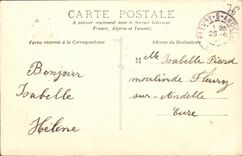 CARTE POSTALE
A utiliser seulement dans le Service Intérieur
(France, Algérie et Tunisie).
Partie réservée à la Correspondance
Adresse du Destinataire
Bonjour
Isabelle
Hélène
Mlle Isabelle Picard
moulin de Fleury
sur Andelle
Eure